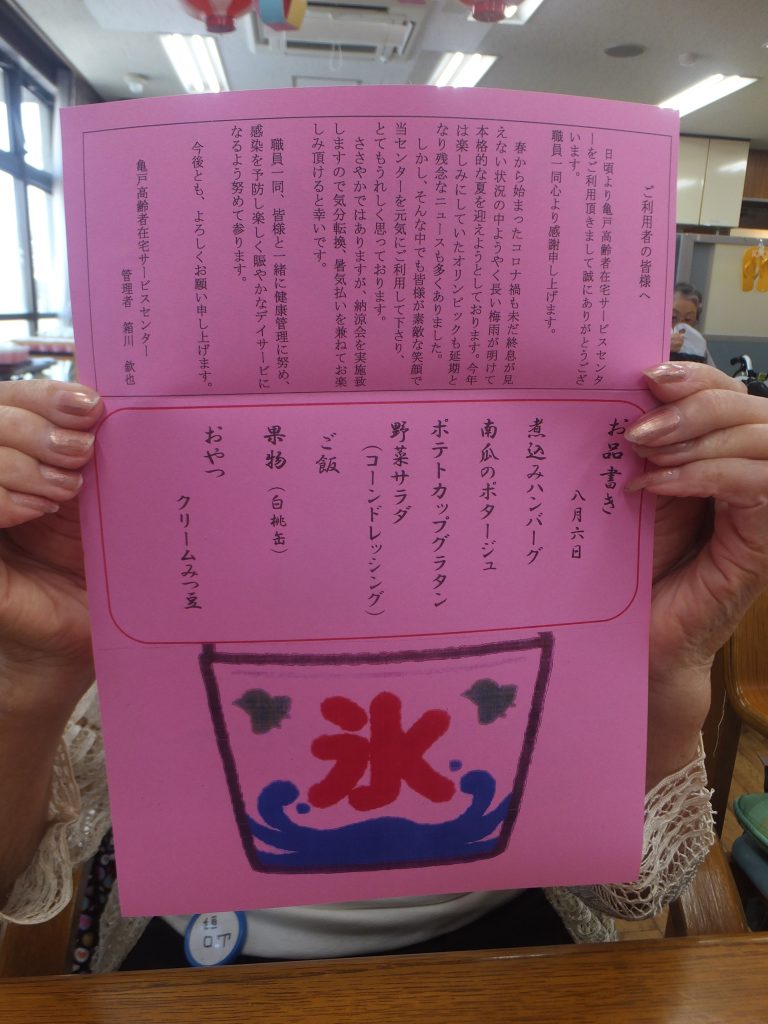 ご利用者の皆様へ
日頃より亀戸高齢者在宅サービスセンタ
ーをご利用頂きまして誠にありがとうござ
います。
職員一同心より感謝申し上げます。
春から始まったコロナ禍も未だ終息が見
えない状況の中ようやく長い梅雨が明けて
本格的な夏を迎えようとしております。今年
は楽しみにしていたオリンピックも延期と
なり残念なニュースも多くありました。
しかし、そんな中でも皆様が素敵な笑顔で
当センターを元気にご利用して下さり、
とてもうれしく思っております。
ささやかではありますが、納涼会を実施致
しますので気分転換、暑気払いを兼ねてお楽
しみ頂けると幸いです。
職員一同、皆様と一緒に健康管理に努め、
感染を予防し楽しく賑やかなデイサービに
なるよう努めて参ります。
今後とも、よろしくお願い申し上げます。
亀戸高齢者在宅サービスセンター
管理者 箱川 欽也
お品書き
八月六日
煮込みハンバーグ
南瓜のポタージュ
ポテトカップグラタン
野菜サラダ
(コーンドレッシング)
ご飯
果物 (白桃缶)
おやつ
クリームみつ豆
氷